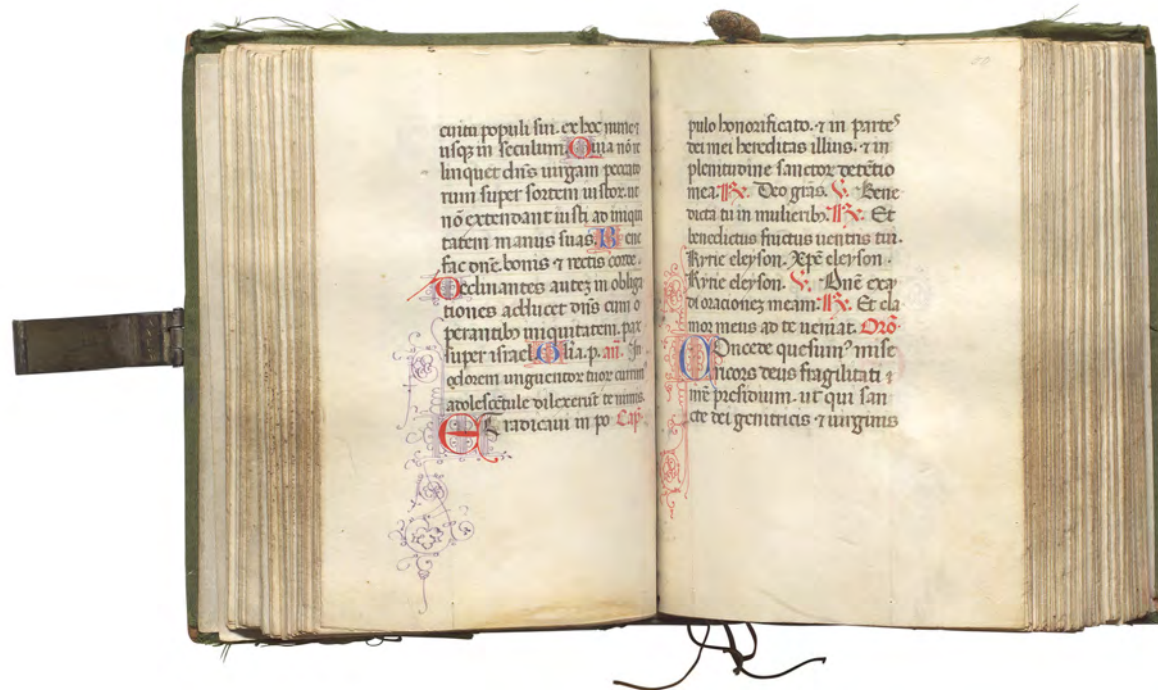 cuitu populi sui. ex hoc nunc ⁊
usqꝫ in seculum. Quia nō re
linquet dn̄s uirgam peccato
rum super sortem iustor. ut
nō extendant iusti ad iniqui
tatem manus suas. Bene
fac dne. bonis ⁊ rectis corde.
Declinantes autez in obliga
tiones adducet dn̄s cum o
perantibꝫ iniquitatem. pax
super israel. Glia. p. an̄. In
odorem unguentor tuor currim
adolescētule dilexerūt te nimis.
Et radicaui in po Cap̄.
pulo honorificato. ⁊ in parteˢ
dei mei hereditas illius. ⁊ in
plenitudine sanctor detētio
mea. ℟. Deo grās. ℣. Bene
dicta tu in mulieribꝫ. ℟. Et
benedictus fructus uentris tui.
Kyrie eleyson. Xpē eleyson.
Kyrie eleyson. ℣. Dnē exau
di oracionez meam. ℟. Et cla
mor meus ad te ueniat. Orō.
Concede quesumꝰ mise
ricors deus fragilitati
presidium. ut qui san
cte dei genitricis ⁊ uirginis